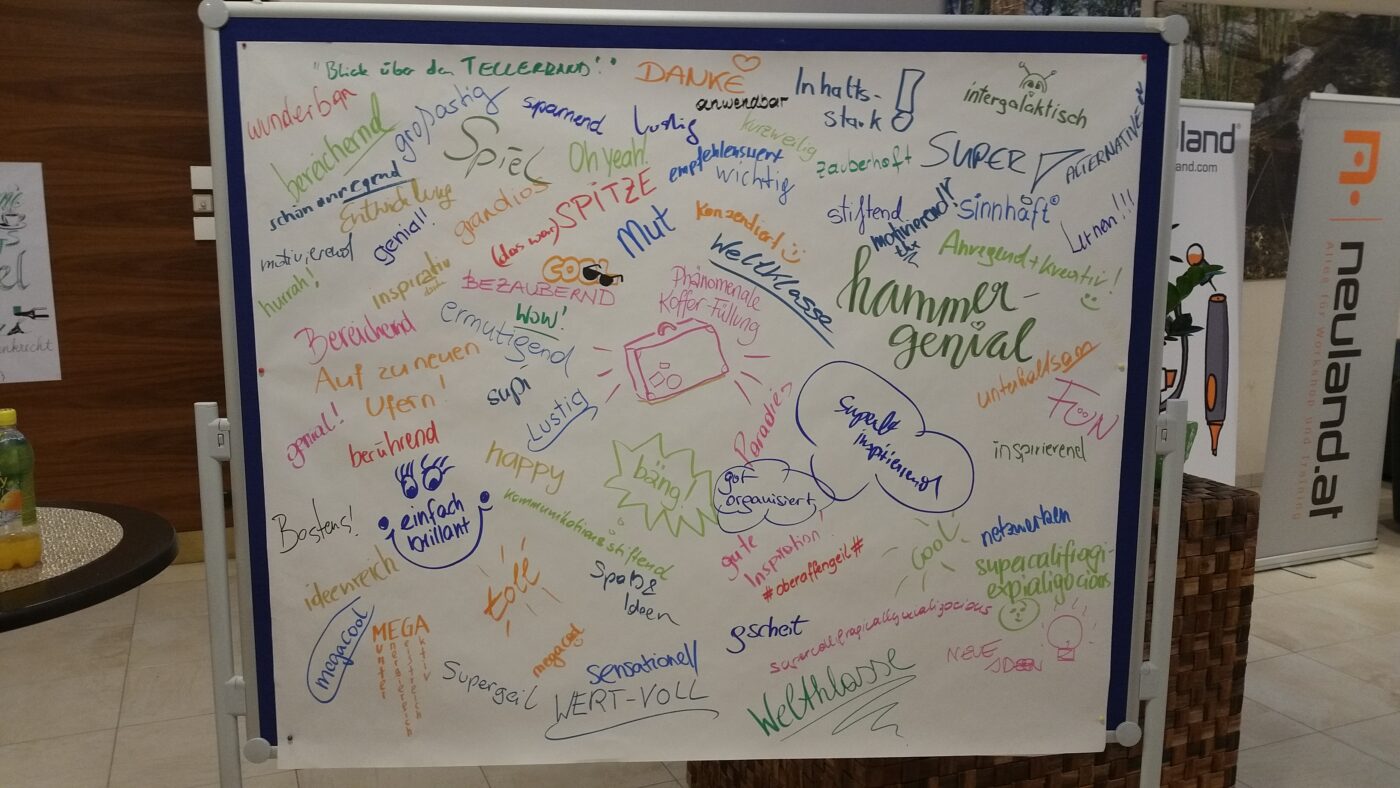 "Blick über den TELLERRAND!"
DANKE
Inhalts-
stark!
intergalaktisch
wunderbar
großartig
spannend
lustig
anwendbar
kurzweilig
bereichernd
Spiel
Oh yeah!
empfehlenswert
wichtig
zauberhaft
SUPER
ALTERNATIVE
schön anregend
Entwicklung
grandios
(das war) SPITZE
Mut
Konzentriert
stiftend
motivierend!
sinnhaft
Lernen!!!
motivierend
genial!!
COOL
Weltklasse
Anregend + kreativ!
hurrah!
inspirativ
BEZAUBERND
Phänomenale
Koffer-Füllung
hammer-
genial
Bereichernd
ermutigend
WOW!
Auf zu neuen
Ufern!
supi
Lustig
Paradies
superb
inspirierend
unterhaltsam
FOON
genial!
berührend
happy
bäng!
gut
organisiert
inspirierend
Bastens!
einfach
brillant
kommunikationsstiftend
gute
Inspiration!
#oberaffengeil#
cool
netzwerken
supercalifragi-
expialigocious
ideenreich
toll
Spaß &
Ideen
megacool
MEGA
munter
energiereich
geistreich
aktiv
Supergeil
megacool
sensationell
WERT-VOLL
gscheit
NEUE
IDEEN
Weltklasse
land
land.com
n.
neuland.at
Alles für Workshop und Training